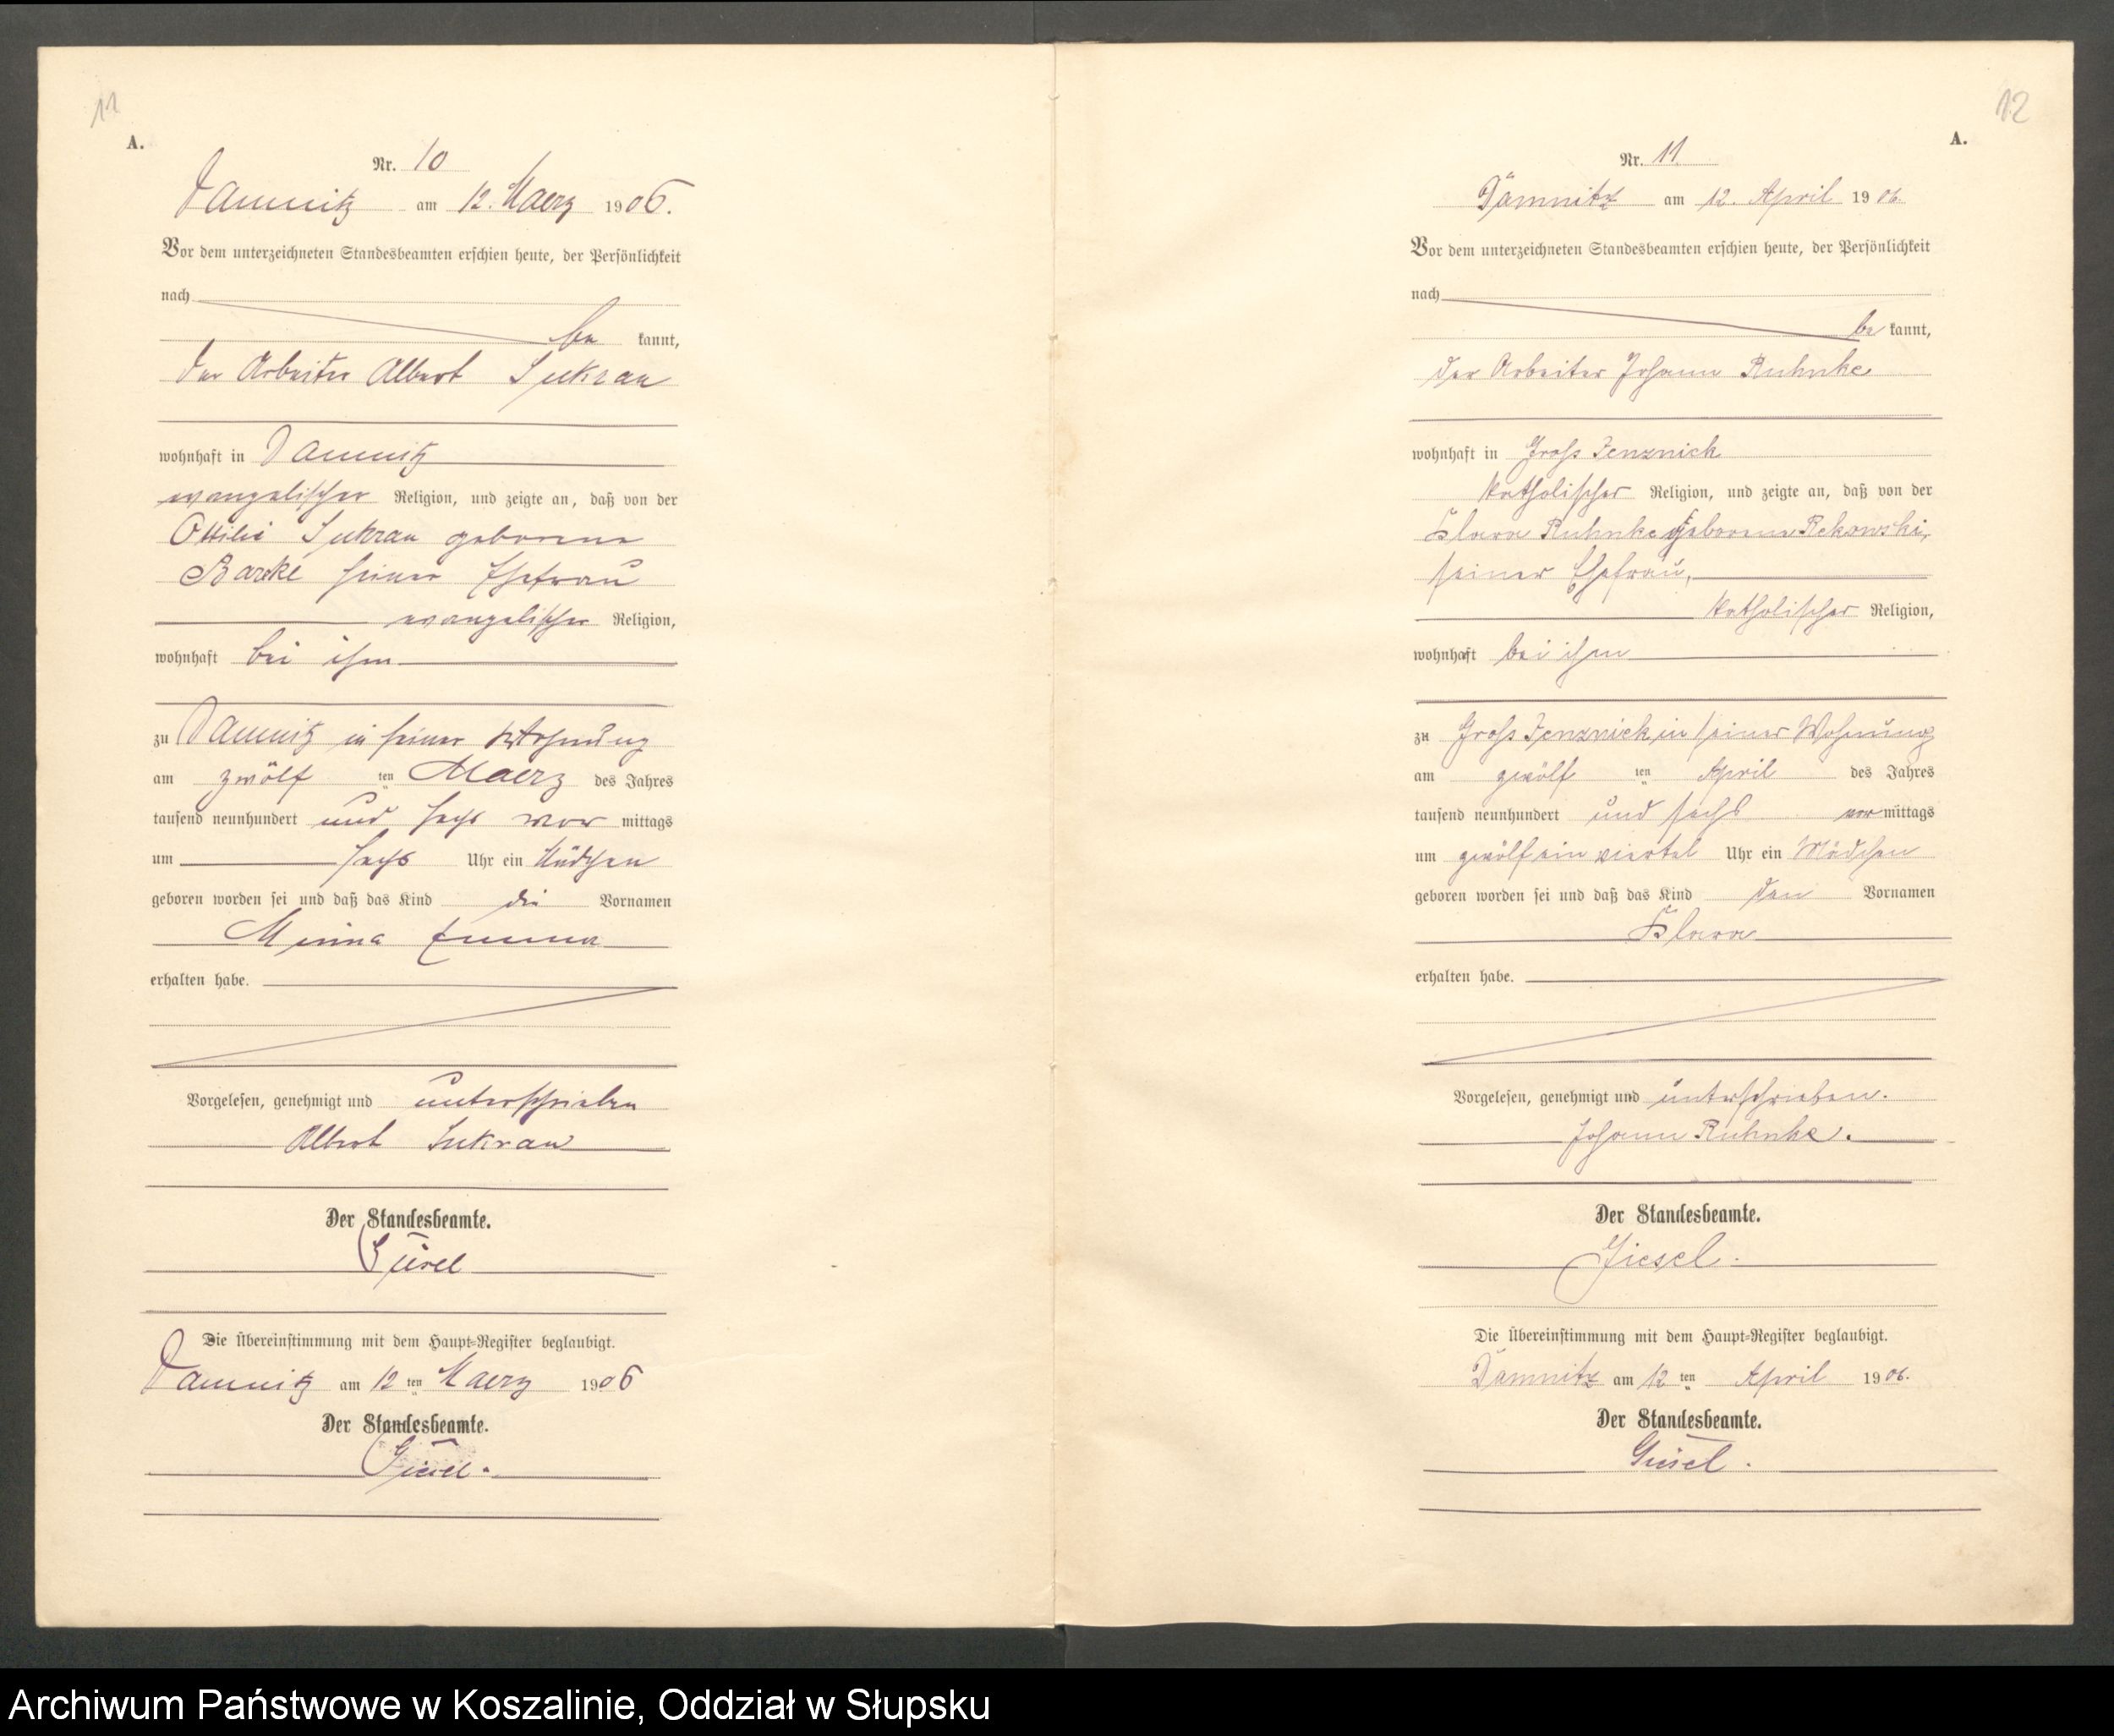 11
A.
Nr. 10
Damnitz am 12. Maerz 1906.
Vor dem unterzeichneten Standesbeamten erschien heute, der Persönlichkeit
nach
be kannt,
der Arbeiter Albert Sukrau
wohnhaft in Damnitz
evangelischer Religion, und zeigte an, daß von der
Ottilie Sukrau geborene
seiner Ehefrau
evangelischer Religion,
wohnhaft bei ihm
zu Damnitz in seiner Wohnung
am zwölf ten Maerz des Jahres
tausend neunhundert und sechs vor mittags
um sechs Uhr ein Mädchen
geboren worden sei und daß das Kind die Vornamen
Minna Emma
erhalten habe.
Vorgelesen, genehmigt und unterschrieben
Albert Sukrau
Der Standesbeamte.
Giesel
Die Übereinstimmung mit dem Haupt-Register beglaubigt.
Damnitz am 12 ten Maerz 1906
Der Standesbeamte.
Giesel.
12
A.
Nr. 11
Damnitz am 12. April 1906.
Vor dem unterzeichneten Standesbeamten erschien heute, der Persönlichkeit
nach
be kannt,
der Arbeiter Johann Ruhnke
wohnhaft in Groß Jenznick
katholischer Religion, und zeigte an, daß von der
Klara Ruhnke geborene Rekowski,
seiner Ehefrau,
katholischer Religion,
wohnhaft bei ihm
zu Groß Jenznick in seiner Wohnung
am zwölf ten April des Jahres
tausend neunhundert und sechs vor mittags
um zwölf ein viertel Uhr ein Mädchen
geboren worden sei und daß das Kind den Vornamen
Klara
erhalten habe.
Vorgelesen, genehmigt und unterschrieben.
Johann Ruhnke.
Der Standesbeamte.
Giesel.
Die Übereinstimmung mit dem Haupt-Register beglaubigt.
Damnitz am 12 ten April 1906.
Der Standesbeamte.
Giesel.
Archiwum Państwowe w Koszalinie, Oddział w Słupsku